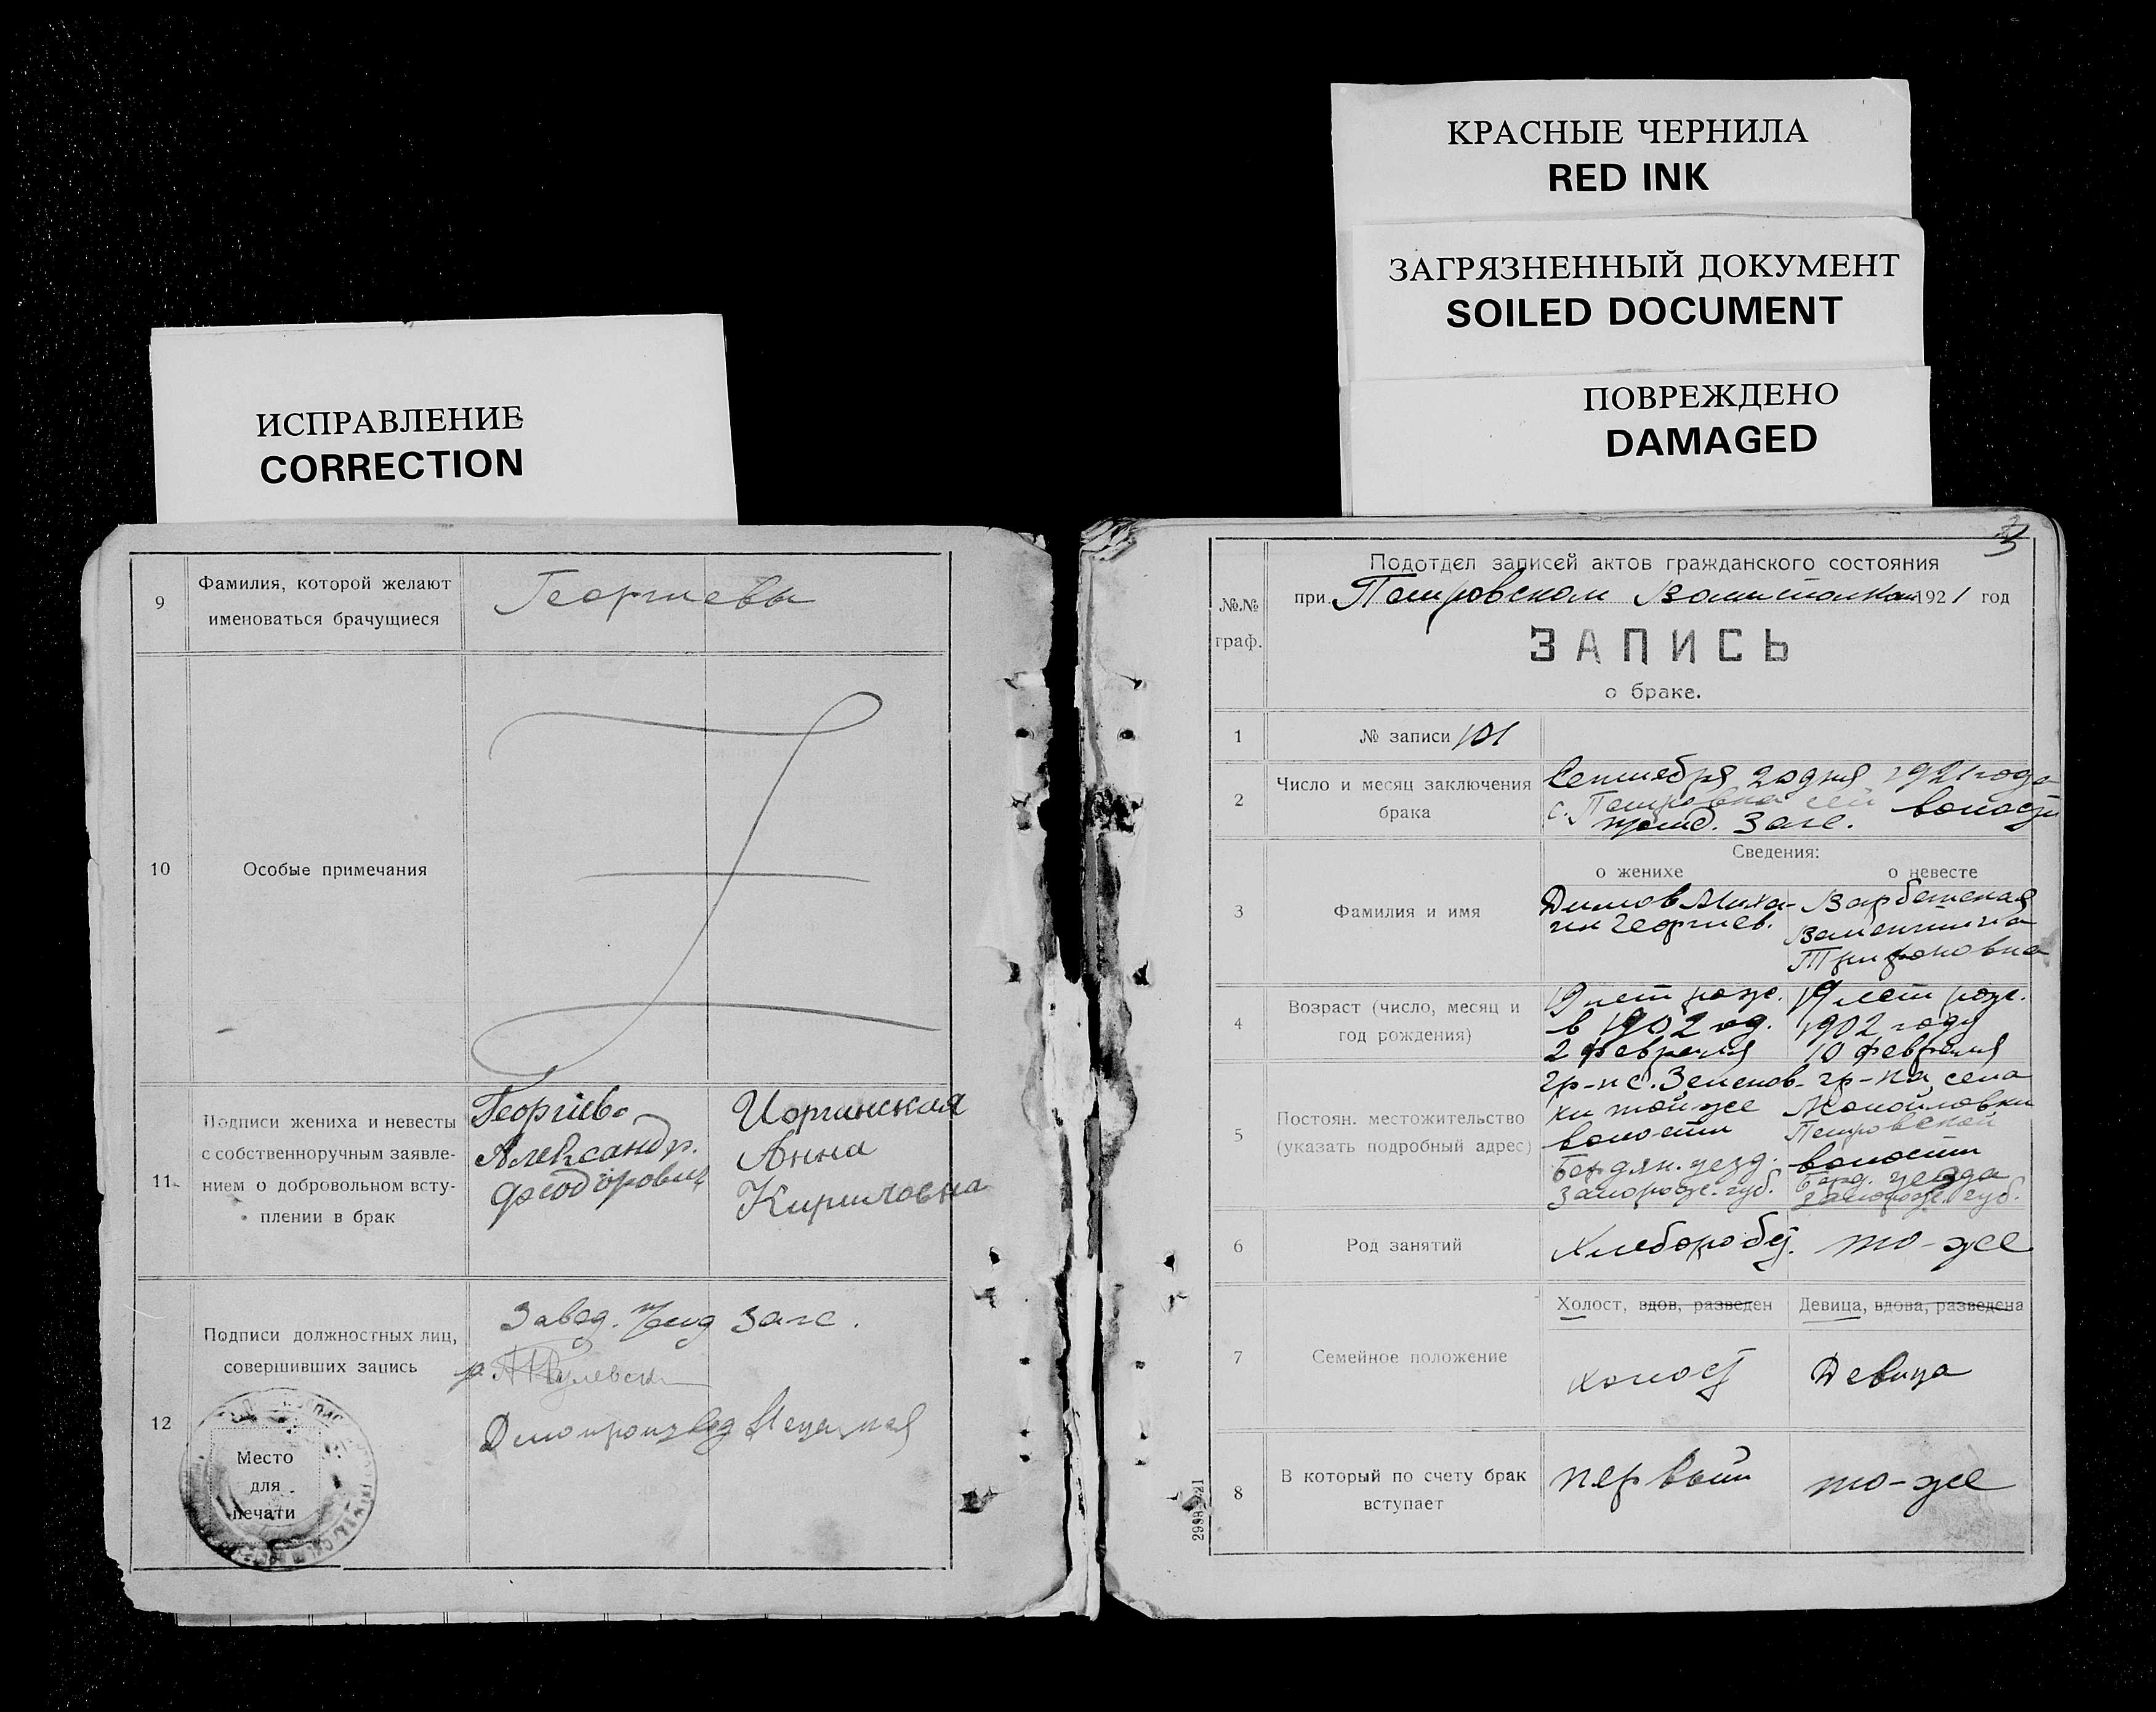 ИСПРАВЛЕНИЕ
CORRECTION
КРАСНЫЕ ЧЕРНИЛА
RED INK
ЗАГРЯЗНЕННЫЙ ДОКУМЕНТ
SOILED DOCUMENT
ПОВРЕЖДЕНО
DAMAGED
9
Фамилия, которой желают
именоваться брачущиеся
Георгиевы
10
Особые примечания
11
Подписи жениха и невесты
с собственноручным заявле-
нием о добровольном всту-
плении в брак
Георгіевъ
Александр.
Феодорович
Иорганская
Анна
Кириловна
12
Подписи должностных лиц,
совершивших запись
Завед. загс.
Место
для
печати
Делопроизвод
3
№№
граф.
Подотдел записей актов гражданского состояния
при Петровском 1921 год
ЗАПИСЬ
о браке.
1
№ записи 101
2
Число и месяц заключения
брака
Сентября 20 дня 1921 года
с. Петровка сей волости
загс.
3
Фамилия и имя
Сведения:
о женихе
о невесте
Димов Миха-
ил Георгиев.
Варбанская
Валентина
Трифоновна
4
Возраст (число, месяц и
год рождения)
19 лет рожд.
в 1902 год.
2 февраля
19 лет рожд.
1902 года
10 февраля
5
Постоян. местожительство
(указать подробный адрес)
гр-н с. Зеленов-
ки той-же
волости
Бердян. уезд.
Запорож. губ.
гр-ка села
Манойловки
Петровской
волости
Берд. уезда
Запорож. губ.
6
Род занятий
Хлебороб
то-же
7
Семейное положение
Холост, вдов, разведен
Девица, вдова, разведена
холост
Девица
8
В который по счету брак
вступает
первый
то-же